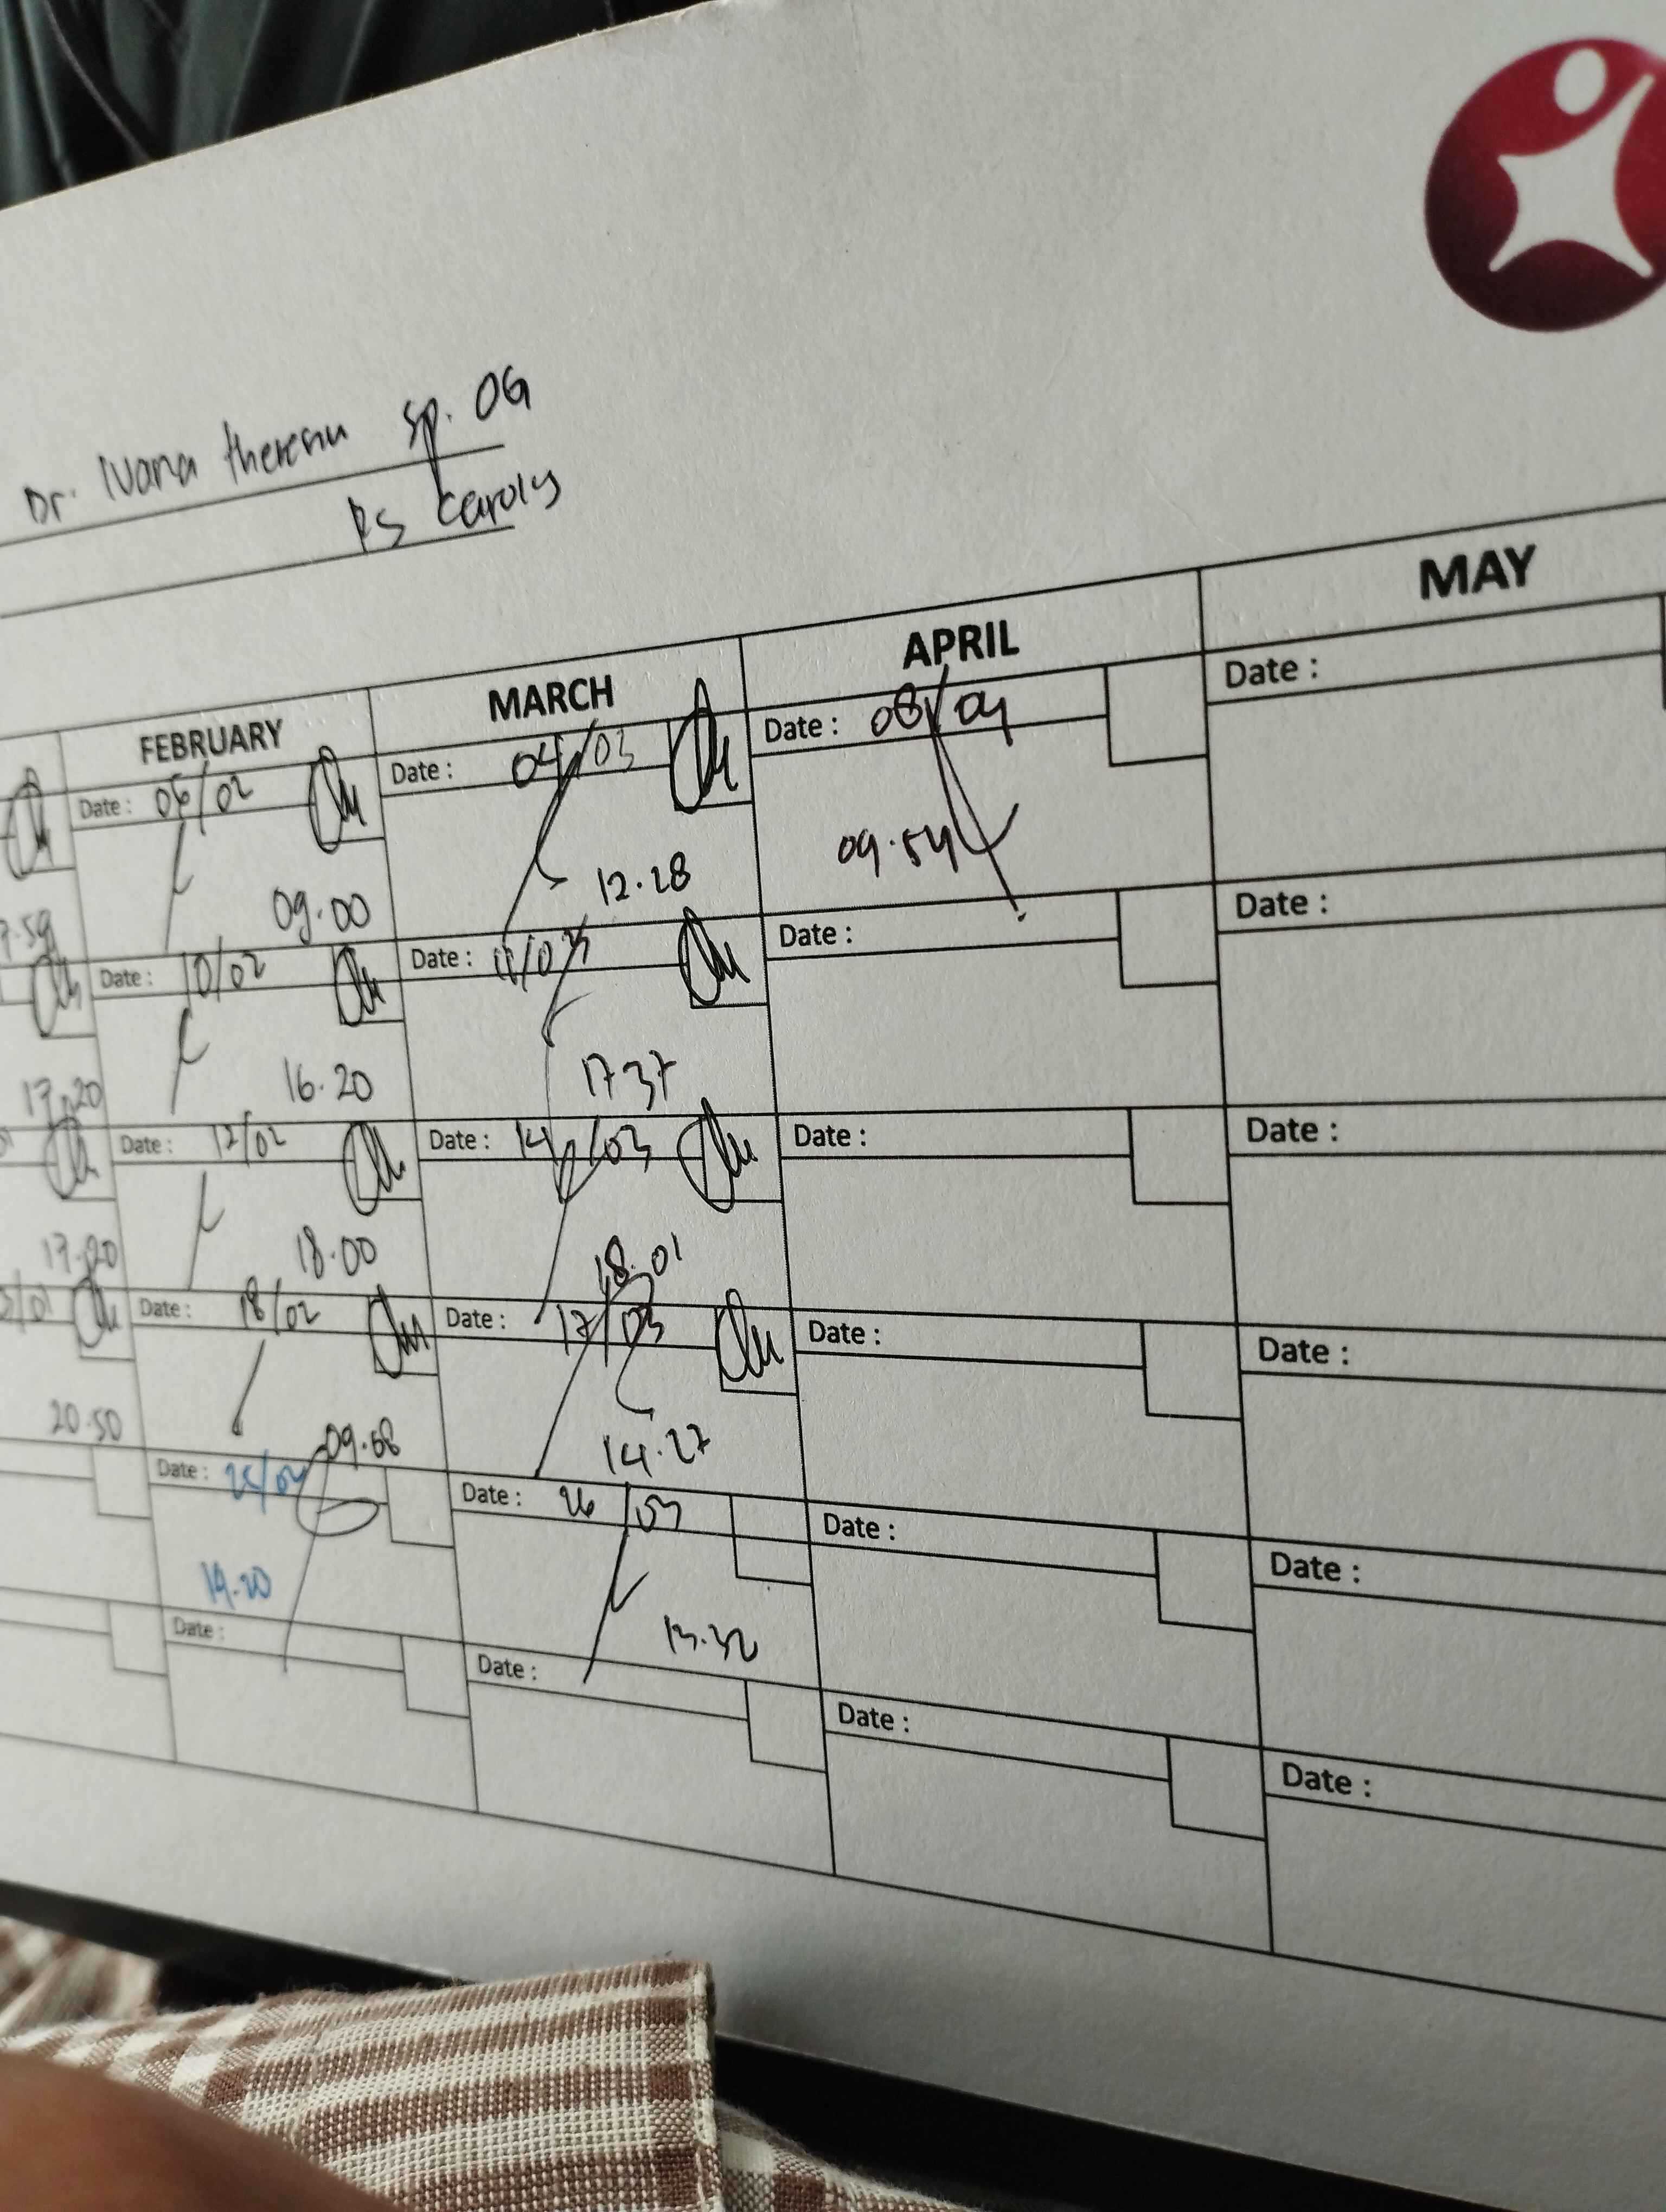 Dr. Ivana theresia sp. OG
RS Carolus
FEBRUARY MARCH APRIL MAY
Date : 06/02 Date : 04/03 Date : 08/04 Date :
7.59 09.00 12.28 09.54
Date : 10/02 Date : 11/03 Date : Date :
17.20 16.20 17 37
Date : 12/02 Date : 14/03 Date : Date :
17.20 18.00 18.01
Date : 18/02 Date : 17/03 Date : Date :
20.50 09.08 14.27
Date : 25/02 Date : 26/03 Date : Date :
19.20 13.32
Date : Date : Date : Date :